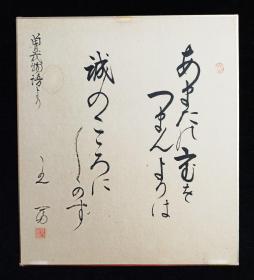 あまたの宝を
つまんよりは
誠のこころに
しくのず
曽我物語より